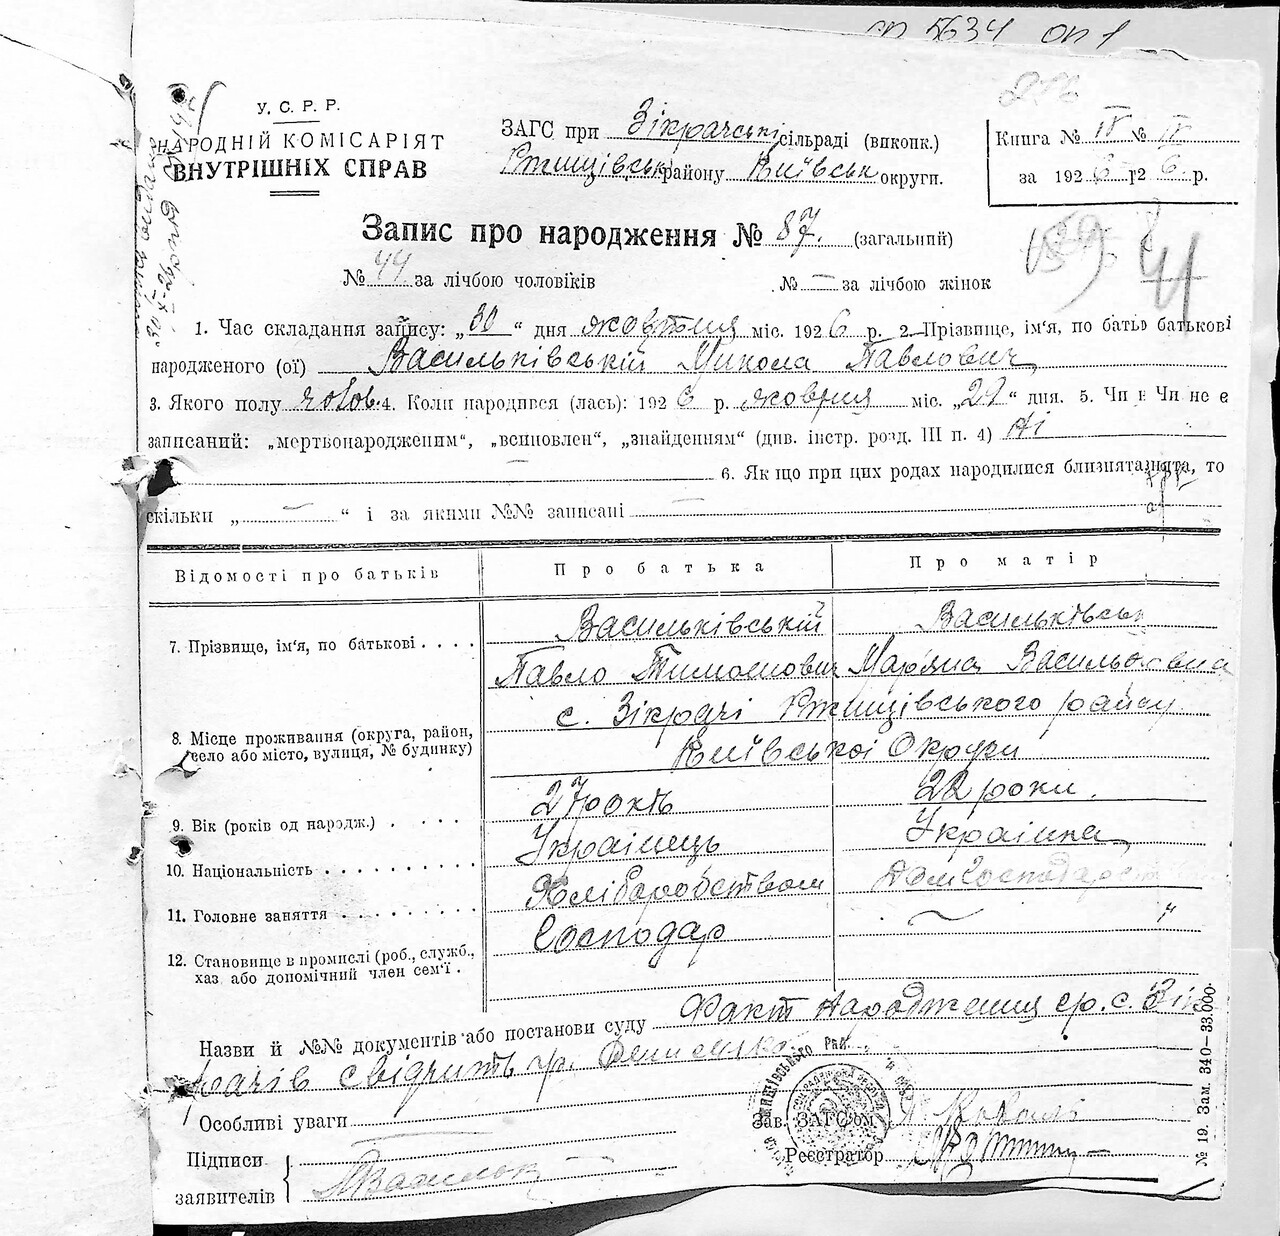 ф 5634 оп 1
У. С. Р. Р.
НАРОДНІЙ КОМІСАРІЯТ
ВНУТРІШНІХ СПРАВ
ЗАГС при Зікрачські сільраді (викопк.)
Ржищівськ району Київськ округи.
Книга № IV № IV
за 1926 р 26 р.
Запис про народження № 87. (загальний)
№ 44 за лічбою чоловіків № — за лічбою жінок
1. Час складання запису: „30“ дня жовтня міс. 1926 р. 2. Прізвище, ім'я, по батьв батькові
народженого (ої) Васильківській Микола Павлович
3. Якого полу чолов. 4. Коли народився (лась): 1926 р. жовтня міс. „29“ дня. 5. Чи є Чи не є
записаний: „мертвонародженим“, „всиновлен“, „знайденням“ (див. інстр. розд. III п. 4) Ні
— 6. Як що при цих родах народилися близнята, нята, то
скільки „ — “ і за якими №№ записані —
Відомості про батьків Про батька Про матір
7. Прізвище, ім'я, по батькові . . . . Васильківській Васильківськ
Павло Тимошович Мар'яна Васильовна
8. Місце проживання (округа, район, село або місто, вулиця, № будинку) с. Зікрачі Ржищівського району
Київської Округи
9. Вік (років од народж.) . . . . 27 років 22 роки.
10. Національність . . . . . . . . . Українець Українка
11. Головне заняття . . . . . . . . . Хліборобством Домгосподарст
12. Становище в промислі (роб., служб., Господар — „
хаз або допомічний член сем'ї .
Назви й №№ документів або постанови суду Факт народження гр. с. Зік
рачів свідчить гр.
Особливі уваги
Зав. ЗАГС'ом
Підписи
заявителів
Васильк
Реєстратор
№ 19. Зам. 340—33.000.